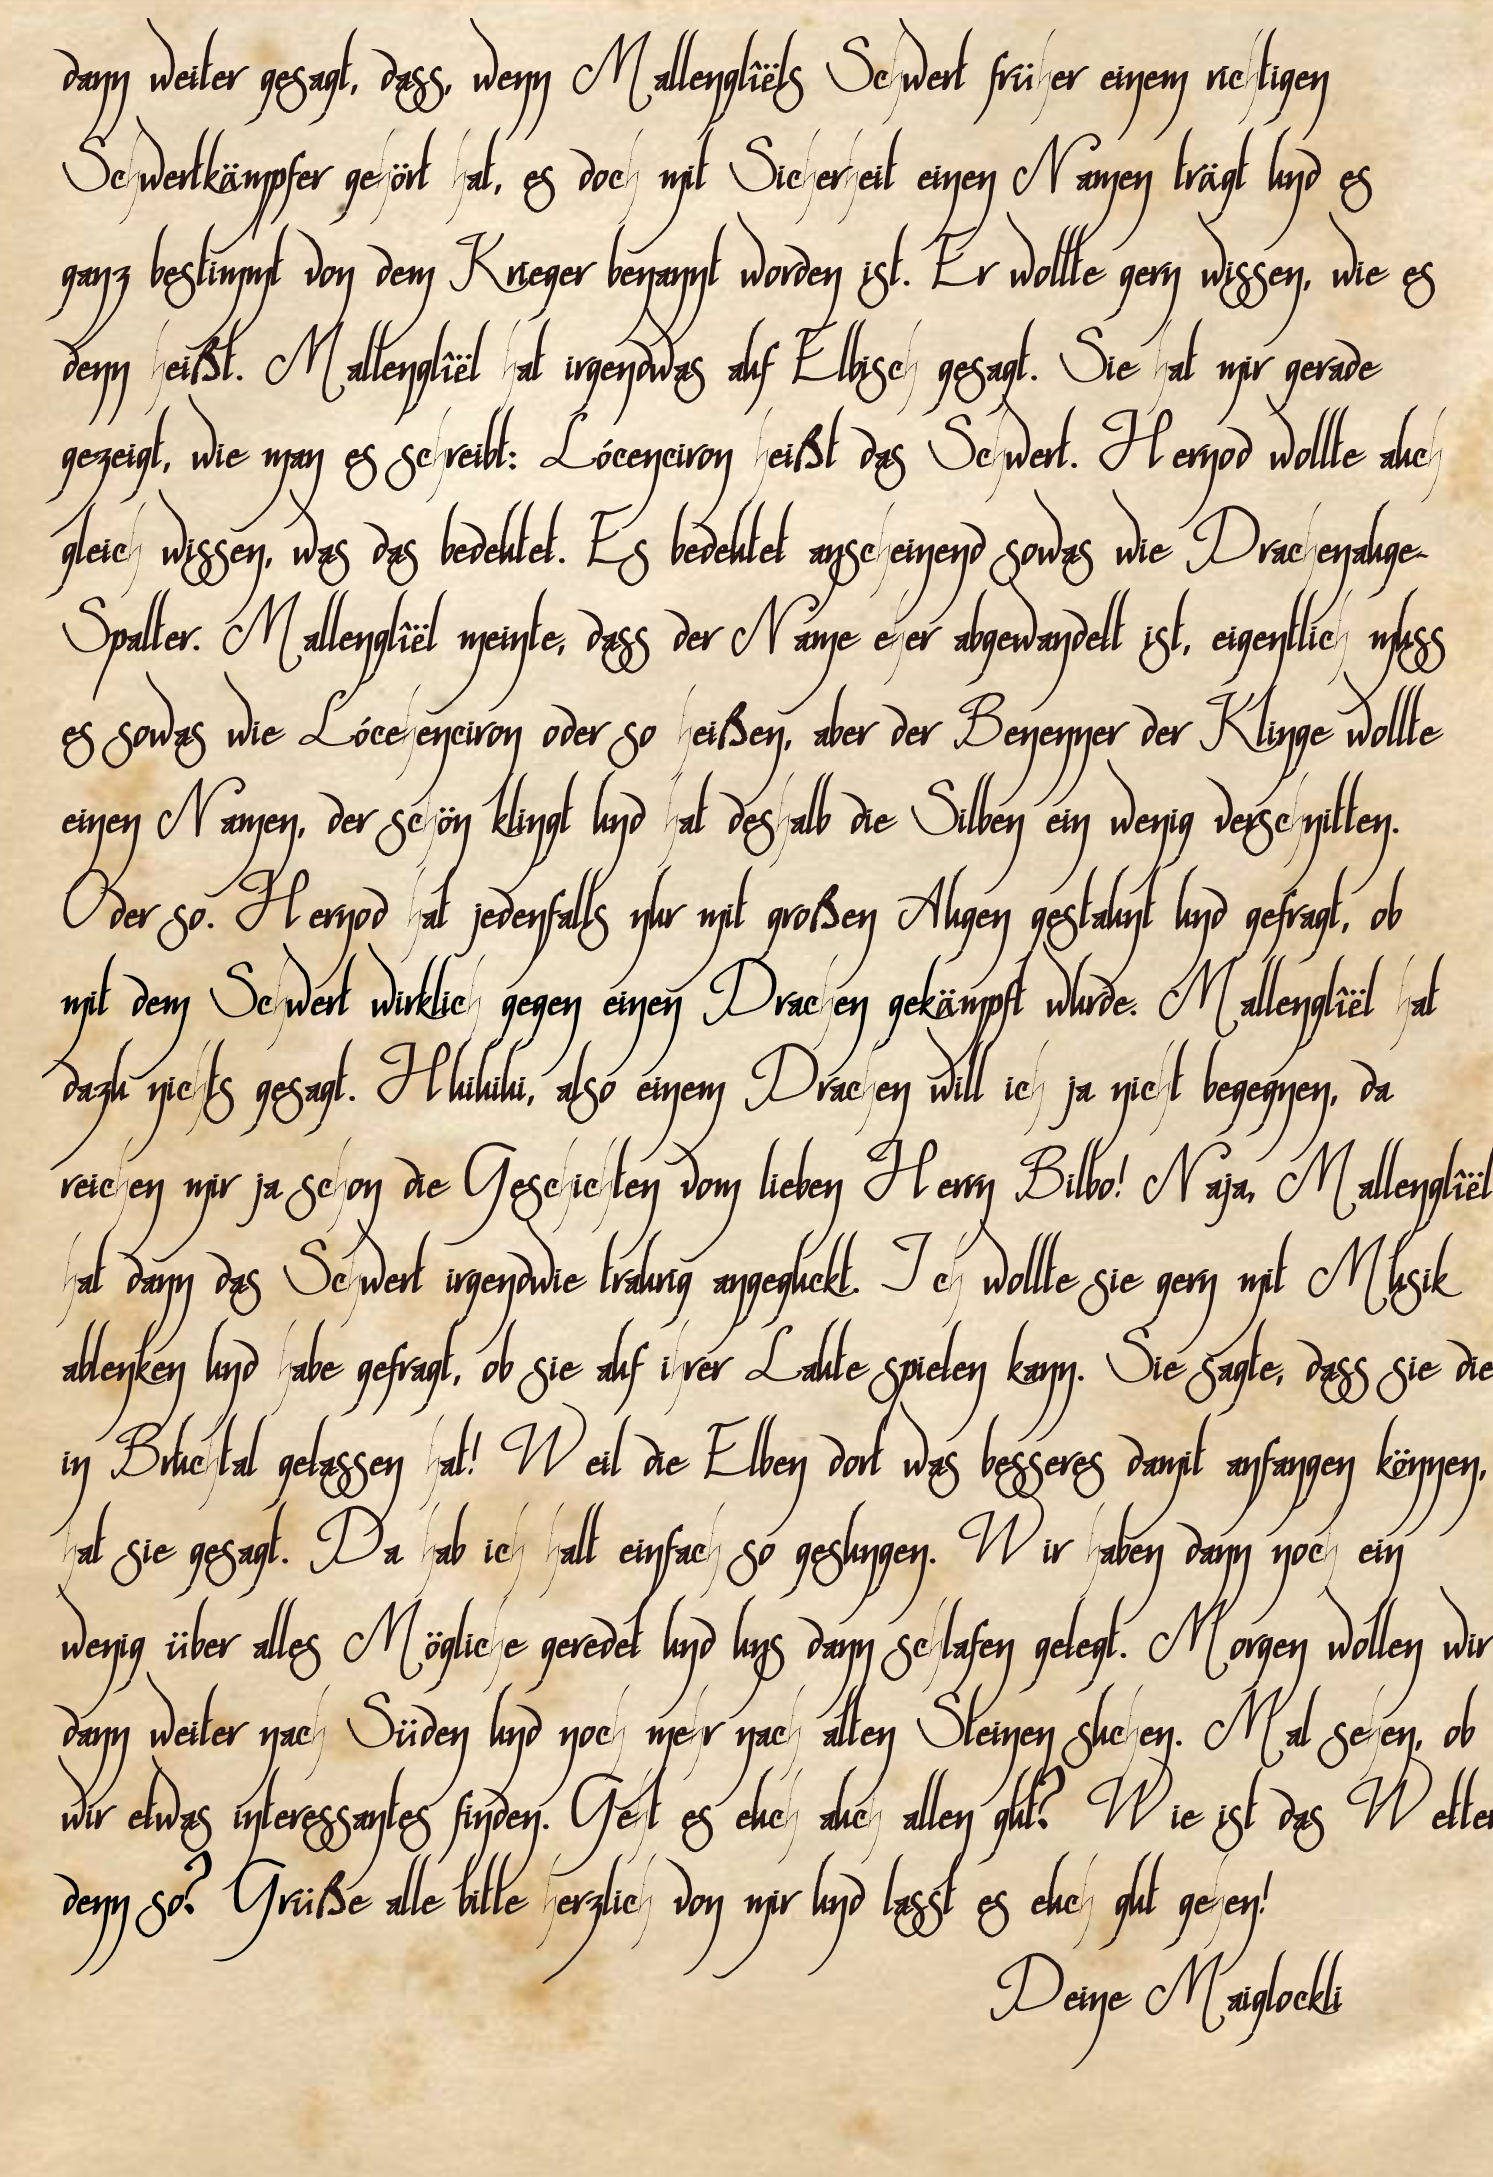 dann weiter gesagt, dass, wenn Mallenglîëls Schwert früher einem richtigen
Schwertkämpfer gehört hat, es doch mit Sicherheit einen Namen trägt und es
ganz bestimmt von dem Krieger benannt worden ist. Er wollte gern wissen, wie es
denn heißt. Mallenglîël hat irgendwas auf Elbisch gesagt. Sie hat mir gerade
gezeigt, wie man es schreibt: Lócenciron heißt das Schwert. Hernod wollte auch
gleich wissen, was das bedeutet. Es bedeutet anscheinend sowas wie Drachenauge-
Spalter. Mallenglîël meinte, dass der Name eher abgewandelt ist, eigentlich muss
es sowas wie Lócehenciron oder so heißen, aber der Benenner der Klinge wollte
einen Namen, der schön klingt und hat deshalb die Silben ein wenig verschnitten.
Oder so. Hernod hat jedenfalls nur mit großen Augen gestaunt und gefragt, ob
mit dem Schwert wirklich gegen einen Drachen gekämpft wurde. Mallenglîël hat
dazu nichts gesagt. Huiuiui, also einem Drachen will ich ja nicht begegnen, da
reichen mir ja schon die Geschichten vom lieben Herrn Bilbo! Naja, Mallenglîël
hat dann das Schwert irgendwie traurig angeguckt. Ich wollte sie gern mit Musik
ablenken und habe gefragt, ob sie auf ihrer Laute spielen kann. Sie sagte, dass sie die
in Bruchtal gelassen hat! Weil die Elben dort was besseres damit anfangen können,
hat sie gesagt. Da hab ich halt einfach so gesungen. Wir haben dann noch ein
wenig über alles Mögliche geredet und uns dann schlafen gelegt. Morgen wollen wir
dann weiter nach Süden und noch mehr nach alten Steinen suchen. Mal sehen, ob
wir etwas interessantes finden. Geht es euch auch allen gut? Wie ist das Wetter
denn so? Grüße alle bitte herzlich von mir und lasst es euch gut gehen!
Deine Maiglockli